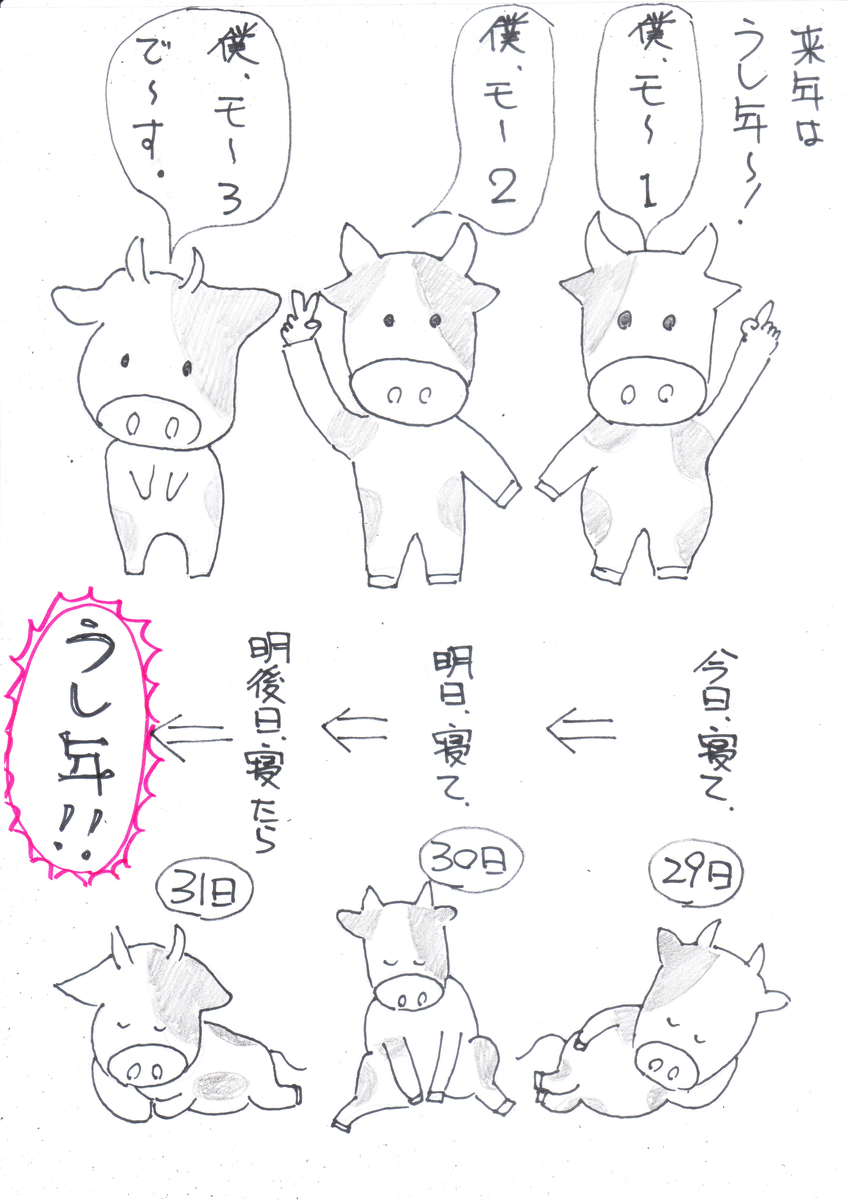 来年は
うし年〜!
僕、モ〜1
僕、モー2
僕、モ〜3
で〜す.
今日、寝て、
明日、寝て、
明後日、寝たら
うし年!!
29日
30日
31日